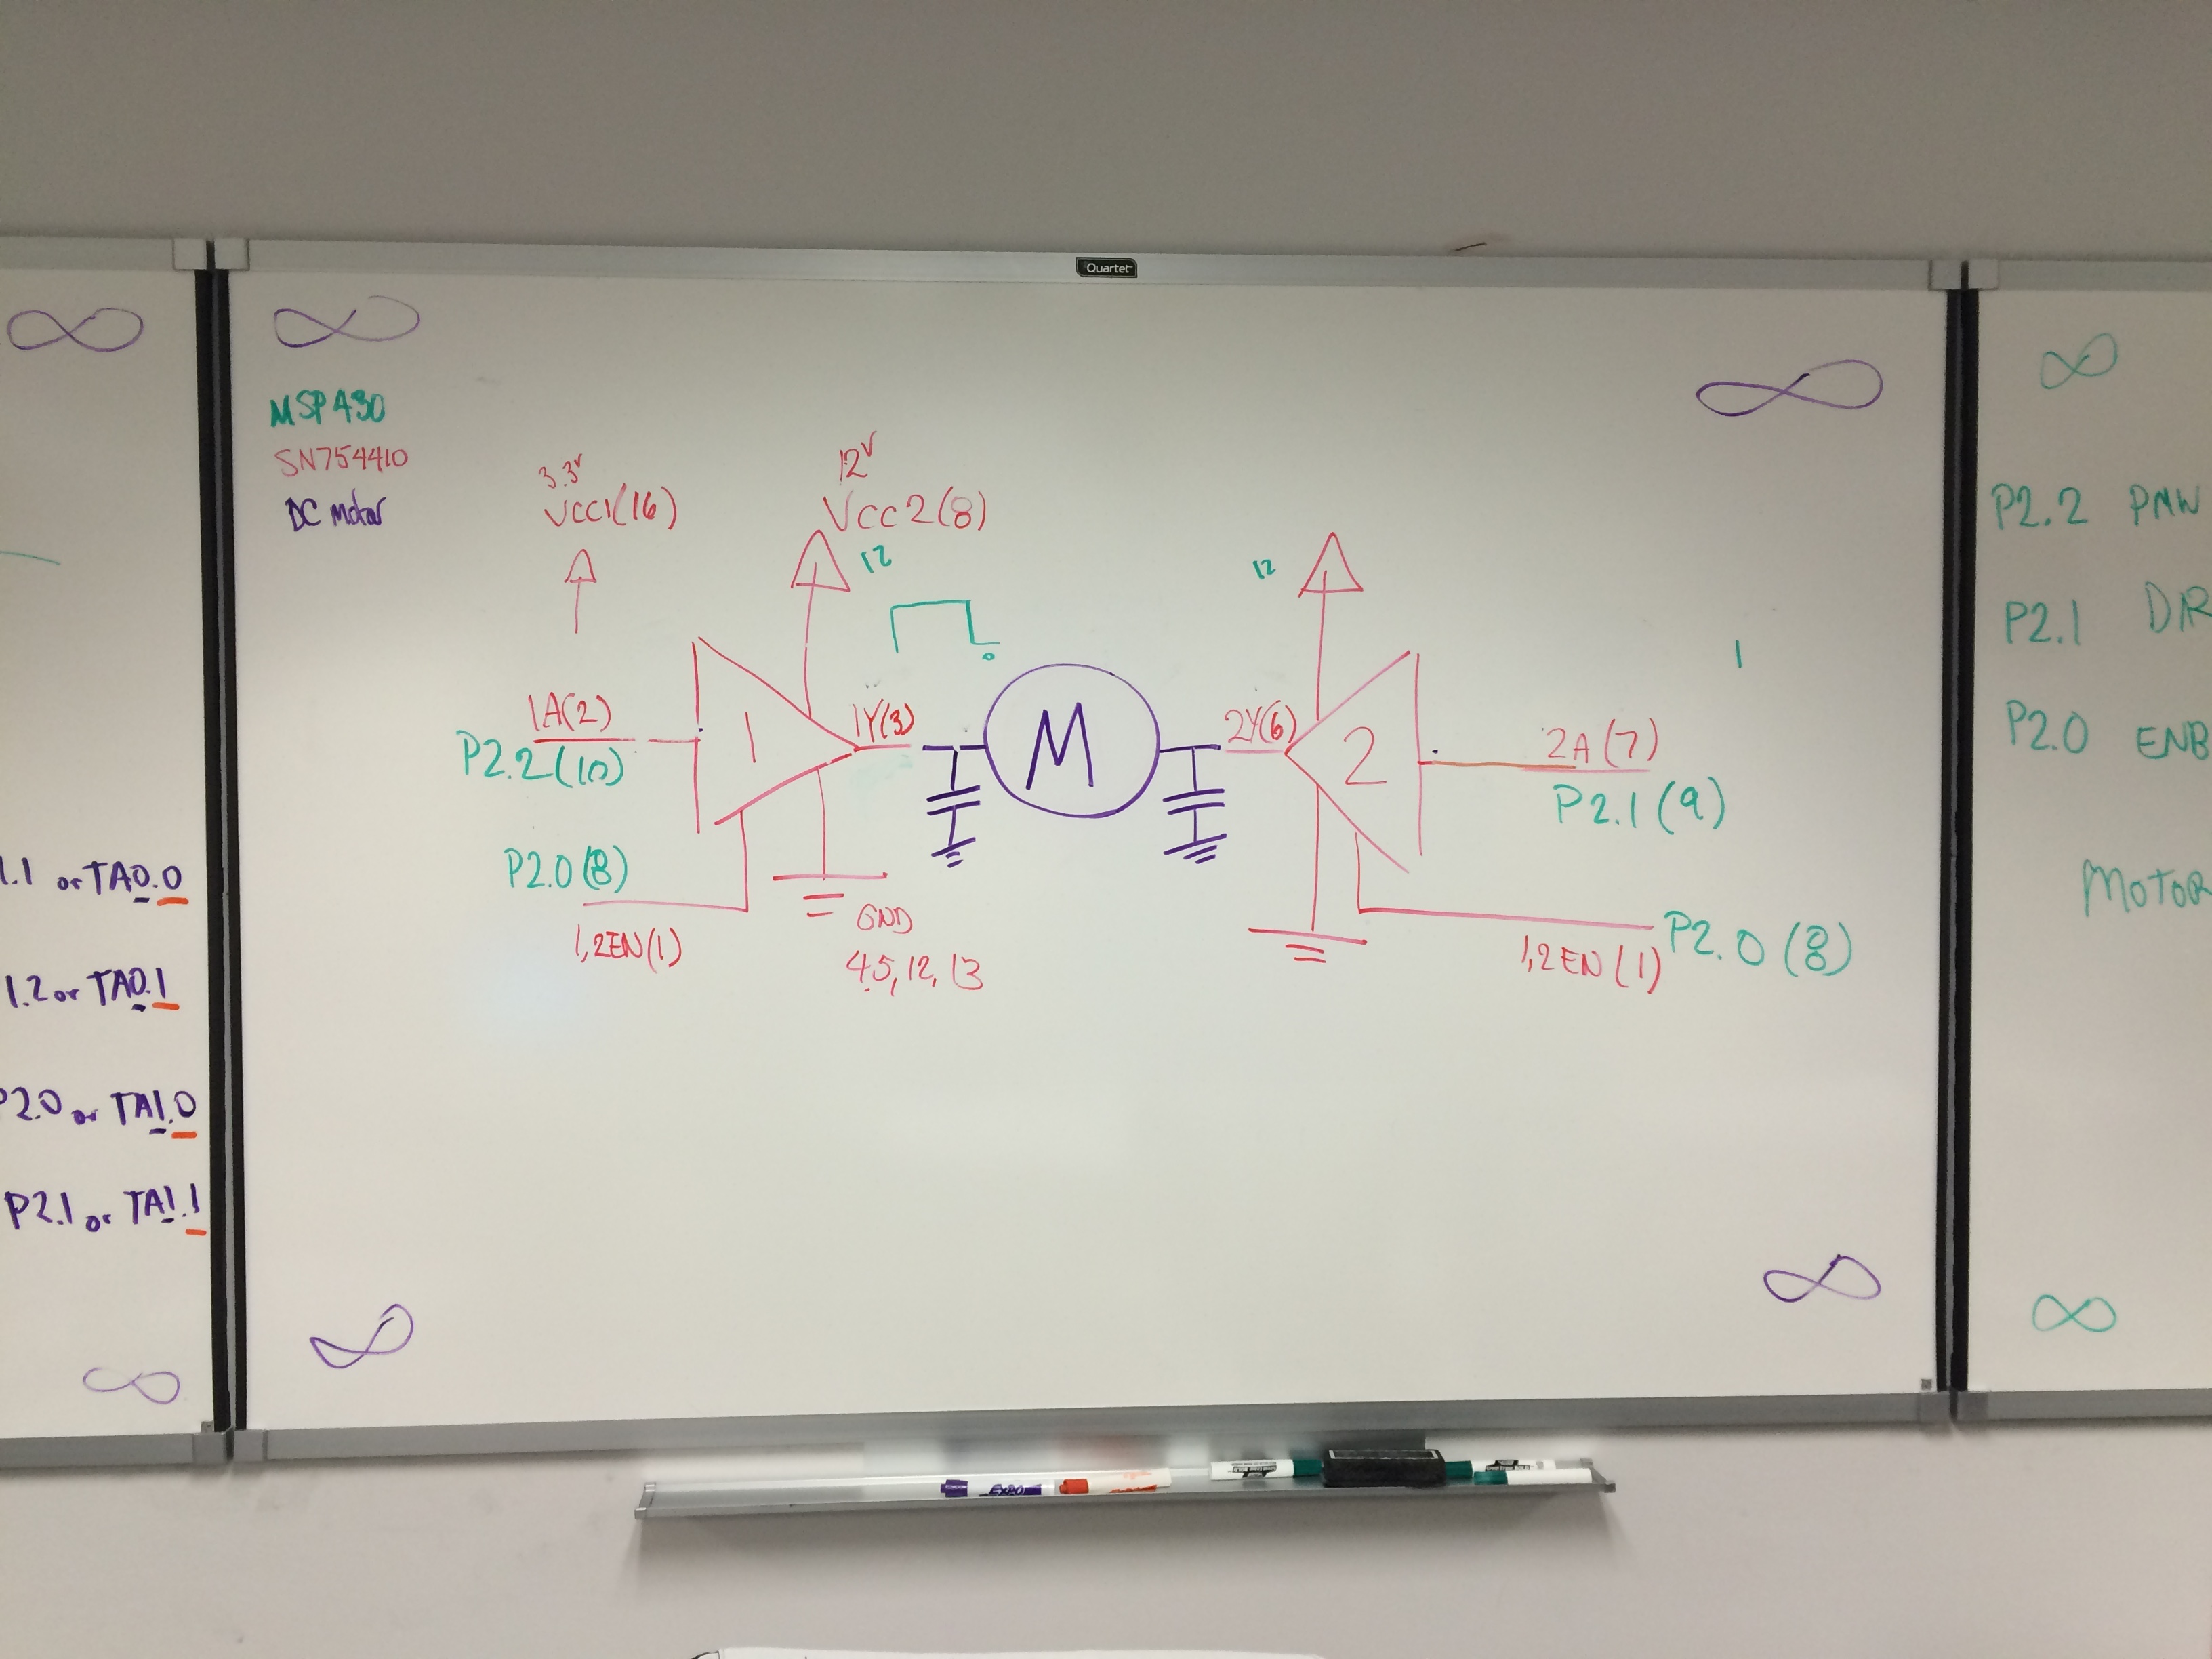 Quartet
∞
∞
1.1 or TA0.0
1.2 or TA0.1
P2.0 or TA1.0
P2.1 or TA1.1
∞
∞
∞
MSP430
SN754410
DC motor
3.3V
VCC1(16)
12V
VCC2(8)
12
12
1
1A(2)
P2.2(10)
1
1Y(3)
M
2Y(6)
2
2A(7)
P2.1(9)
P2.0(8)
1,2EN(1)
GND
4,5,12,13
P2.0(8)
1,2EN(1)
∞
∞
∞
P2.2 PMW
P2.1 DIR
P2.0 ENB
MOTOR
∞
EXPO